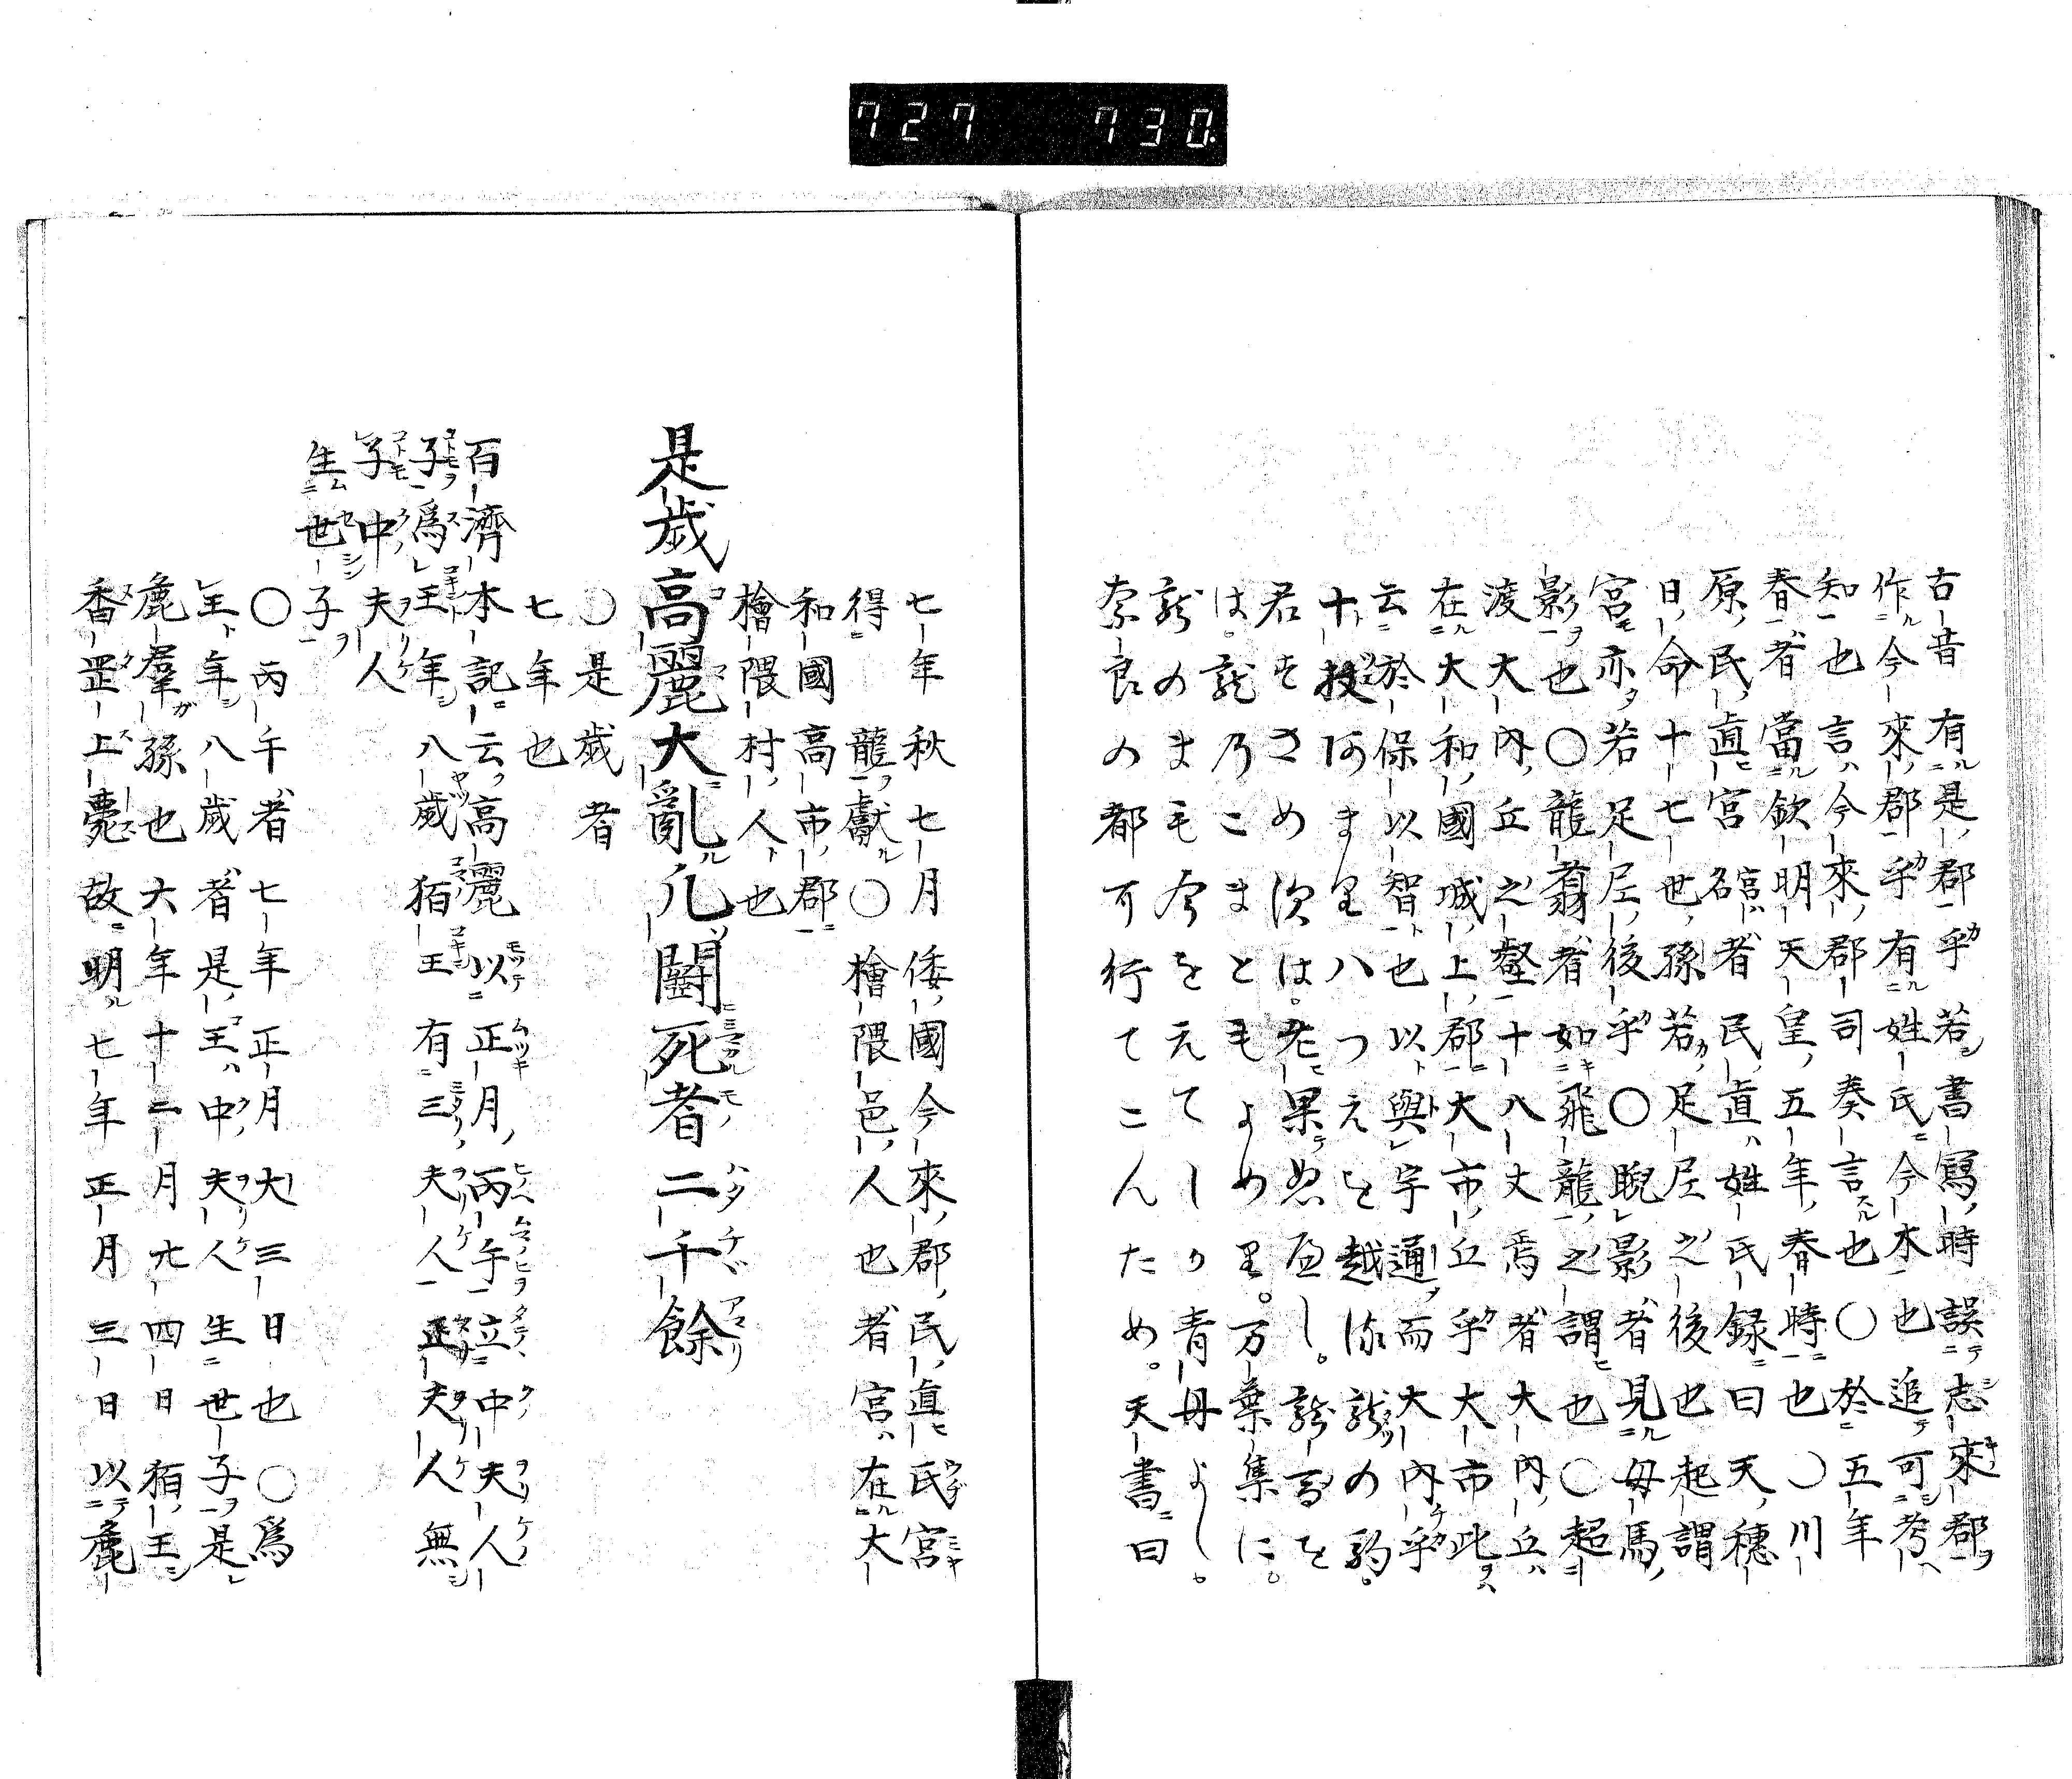 727 730
古音有是郡乎若書寫時誤志來郡
作今來郡乎有姓氏今木也追可考
知也言今來郡司奏言也〇於五年
春者當欽明天皇五年春時也〇川
原民直宮名者民直姓氏録曰天穗
日命十七世孫若足尼之後也起謂
宮亦若足尼後乎〇睨影者見母馬
影也〇龍翥者如飛龍之謂也〇超
渡大内丘之壑十八丈焉者大内丘
在大和國城上郡大市丘乎大市此
云於保以智也以與宇通而大内乎
十技河まりハつえを越ゆ龍の駒
君をさめ次は。老果ぬへし。龍馬を
は。龍乃こまともよめり。万葉集に。
龍のまモ今をえてしか青丹よし。
奈良の都可行てこんため。天書曰
七年秋七月倭國今來郡民直氏宮
得龍獻〇檜隈邑人也者宮在大
和國高市郡
檜隈村人也
是歳高麗大亂凡鬪死者二千餘
〇是歳者
七年也
百濟本記云高麗以正月丙午立中夫人
子爲王年八歳狛王有三夫人正夫人無
子中夫人
生世子
〇丙午者七年正月大三日也〇爲
王年八歳者是王中夫人生世子是
鹿羣孫也六年十二月廿四日狛王
香罡上薨故明七年正月三日以鹿